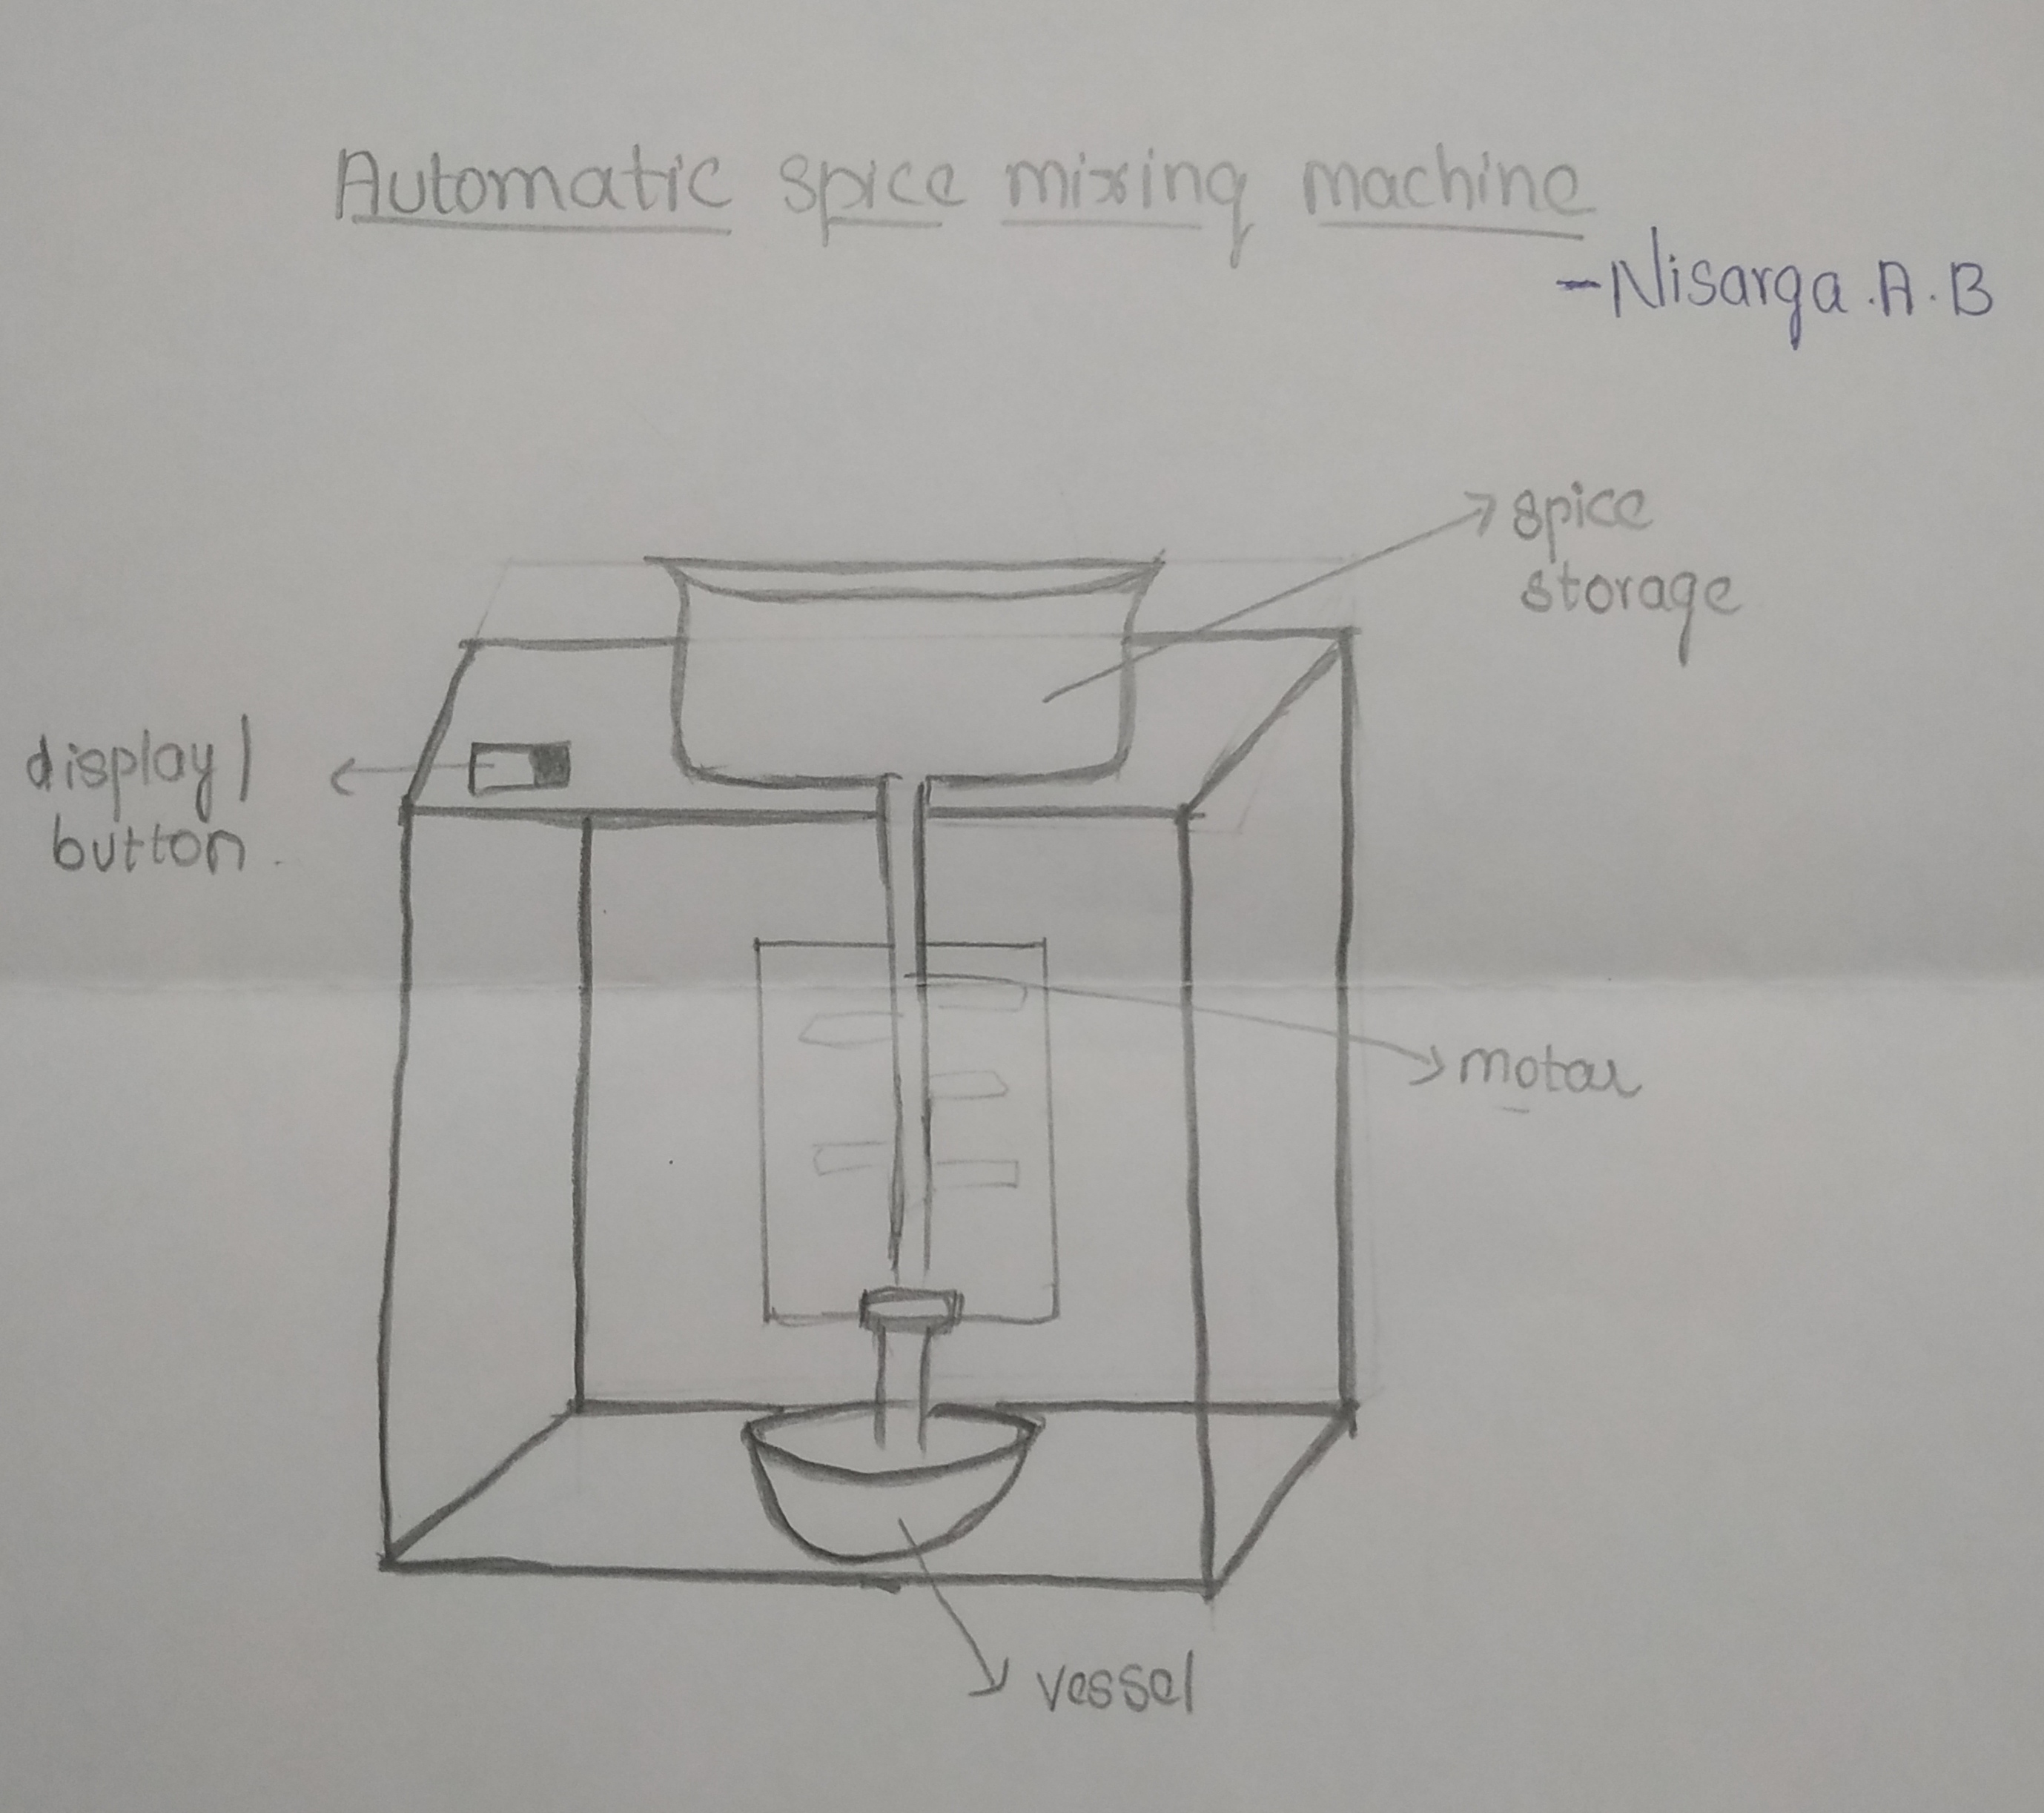 Automatic spice mixing machine
-Nisarga.A.B
spice
storage
display/
button.
motor
vessel